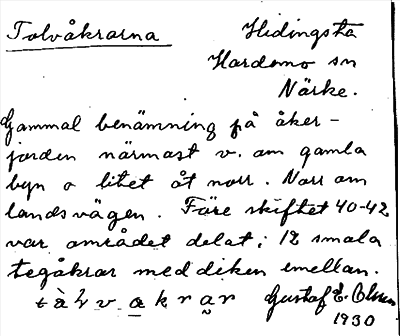 Tolvåkrarna
Hidingsta
Hardemo sn
Närke.
Gammal benämning på åker-
jorden närmast v. om gamla
byn o litet åt norr. Norr om
landsvägen. Före skiftet 40-42
var området delat i 12 smala
tegåkrar med diken emellan.
Gustaf E. Olsson
1930